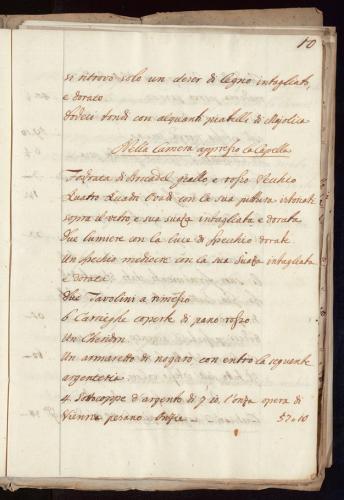 10
si ritrovò solo un deser di legno intagliato,
e dorato
dodeci tondi con alquanti piatelli di Majolica
Nella Camera appresso la Capella
Fodrata di brocadel giallo e rosso Vecchio
Quatro Quadri Ovadi con la sua pittura
sopra il vetro, e sua suaza intagliata e dorata
due lumiere con la luce di specchio dorate
Un specchio mediocre con la sua suaza intagliata
e dorata
due Tavolini a rimesso
6 Carieghe coperte di pano rosso
Un
Un armaretto di nogara con entro la seguente
argenteria
4. Sottocoppe d'argento di l'onza opera di
Vienna pesano Onze 57 10